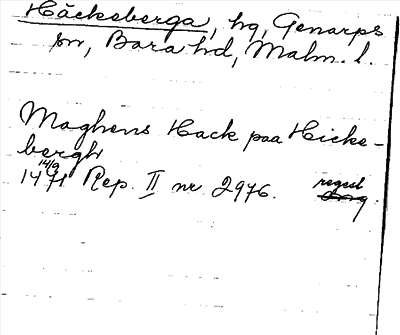 Häckeberga, hg, Genarps
sn, Bara hd, Malm. l.
Maghens Hack paa Hicke-
bergh
14/9
1471 Rep. II nr 2976. regest